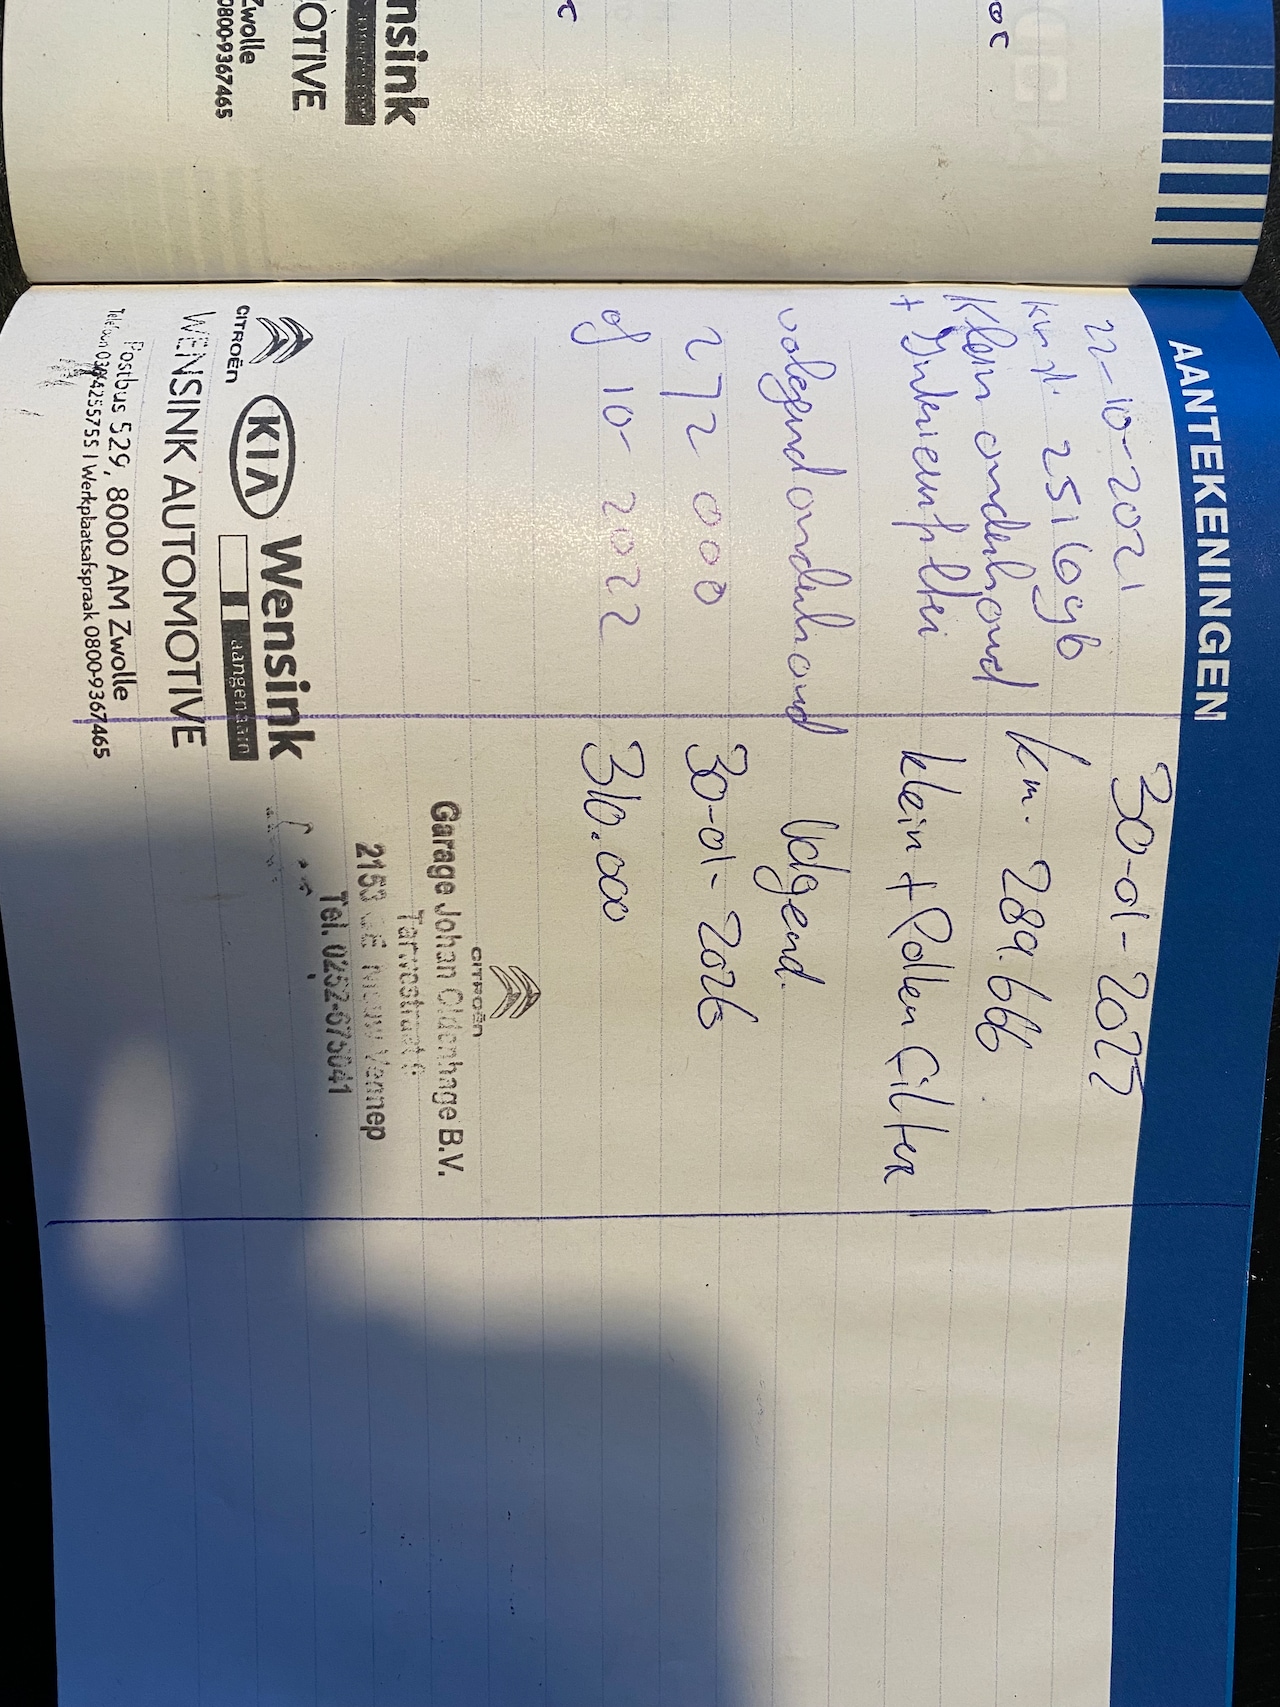 nsink
OTIVE
Zwolle
0800-9367465
AANTEKENINGEN
22-10-2021
km st. 251696
Klein onderhoud
+ Interieurfilter
volgend onderhoud
272 000
of 10-2022
CITROËN
KIA
Wensink
aangenaam
WENSINK AUTOMOTIVE
Postbus 529, 8000 AM Zwolle
Telefoon 038 4255755 | Werkplaatsafspraak 0800-9367465
30-01-2025
km. 289.666
klein + Pollen Filter
Volgend.
30-01-2026
310.000
CITROËN
Garage Johan Oldenhage B.V.
Tarwestraat 6
2153 Nieuw Vennep
Tel. 0252-675041